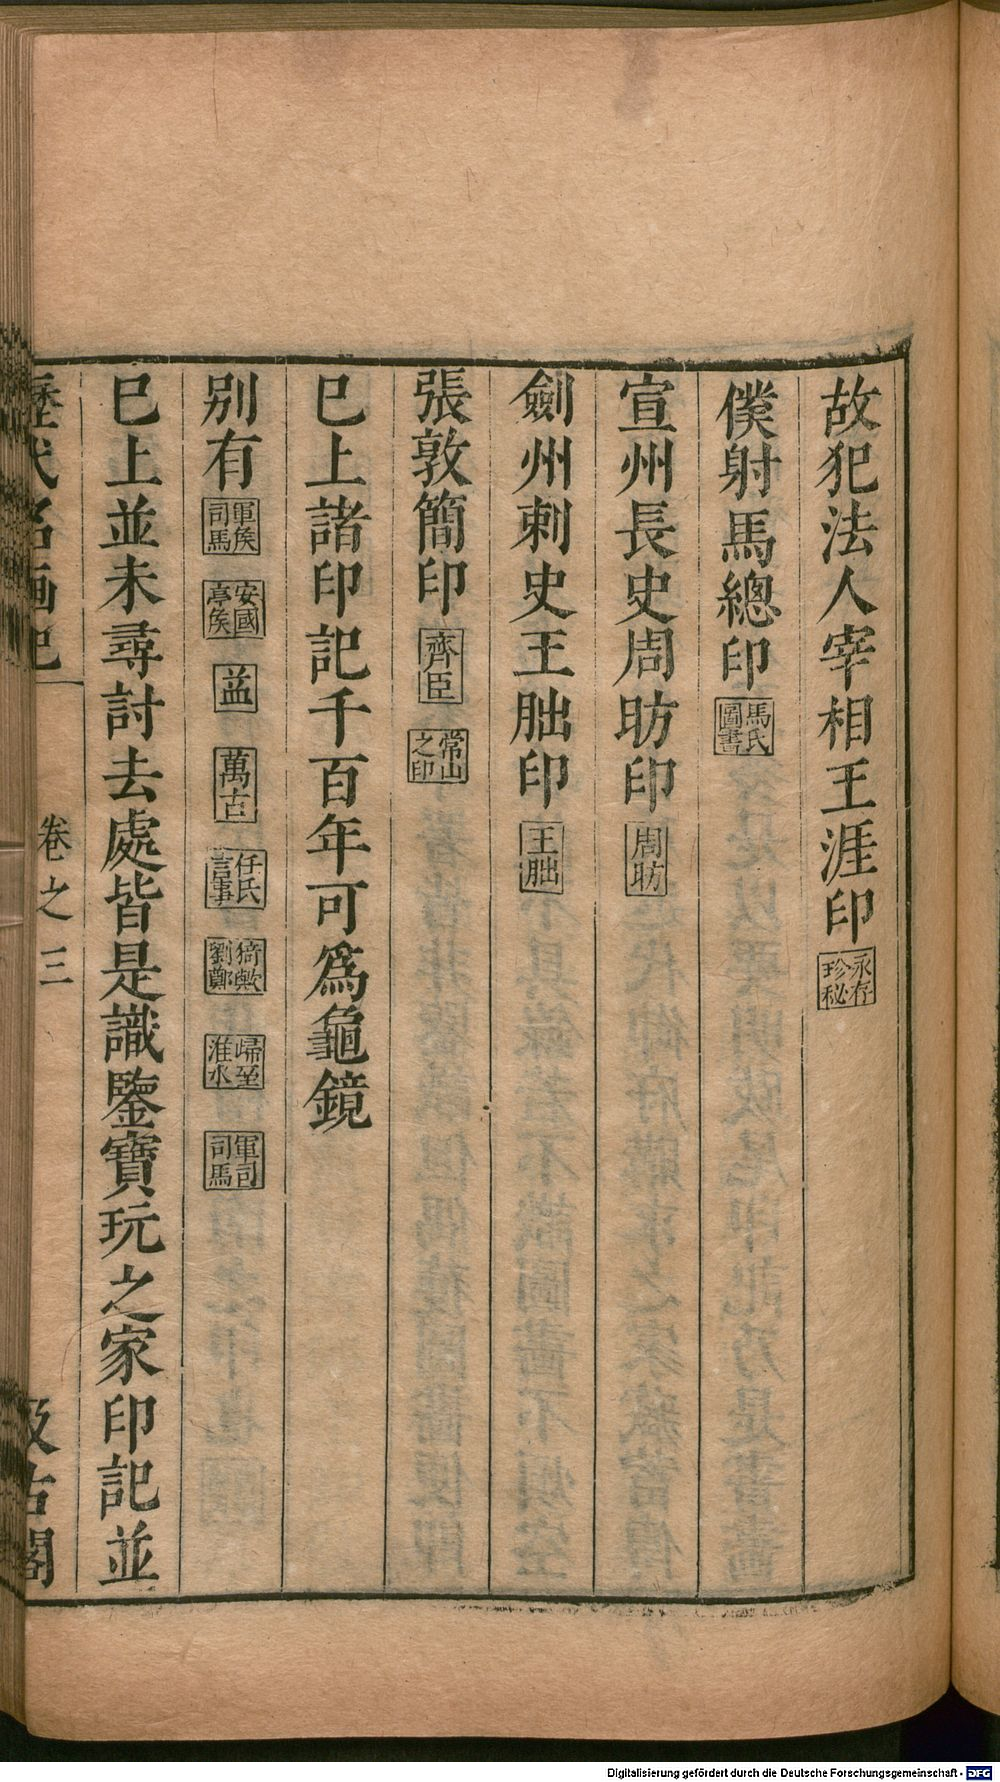 故犯法人宰相王涯印永存珍秘
僕射馬總印馬氏圖書
宣州長史周昉印周昉
劍州刺史王朏印王朏
張敦簡印齊臣常山之印
巳上諸印記千百年可爲龜鏡
別有軍侯司馬安國亭侯益萬古任氏言事猗歟劉鄭歸至淮水軍司司馬
巳上並未尋討去處皆是識鑒寶玩之家印記並
歷代名画記 卷之三 汲古閣
Digitalisierung gefördert durch die Deutsche Forschungsgemeinschaft - DFG